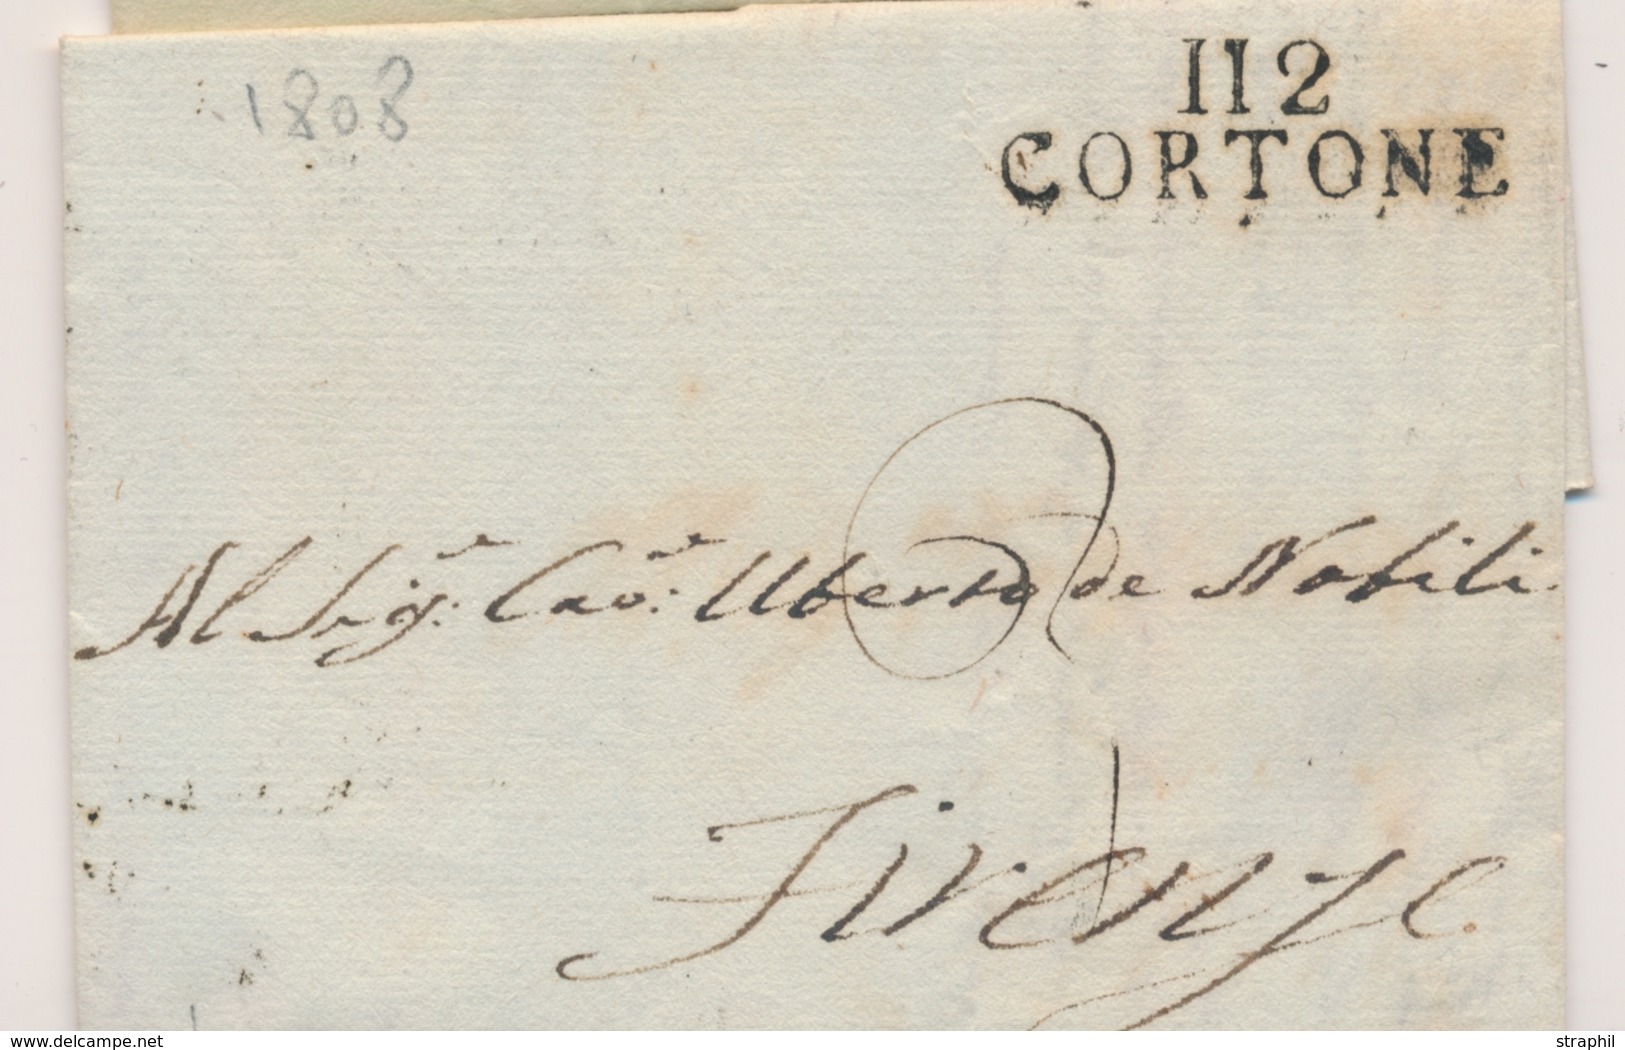 1808
112
CORTONE
Al Sig.re Cav.re Uberto de Nobili
Firenze.
www.delcampe.net
straphil